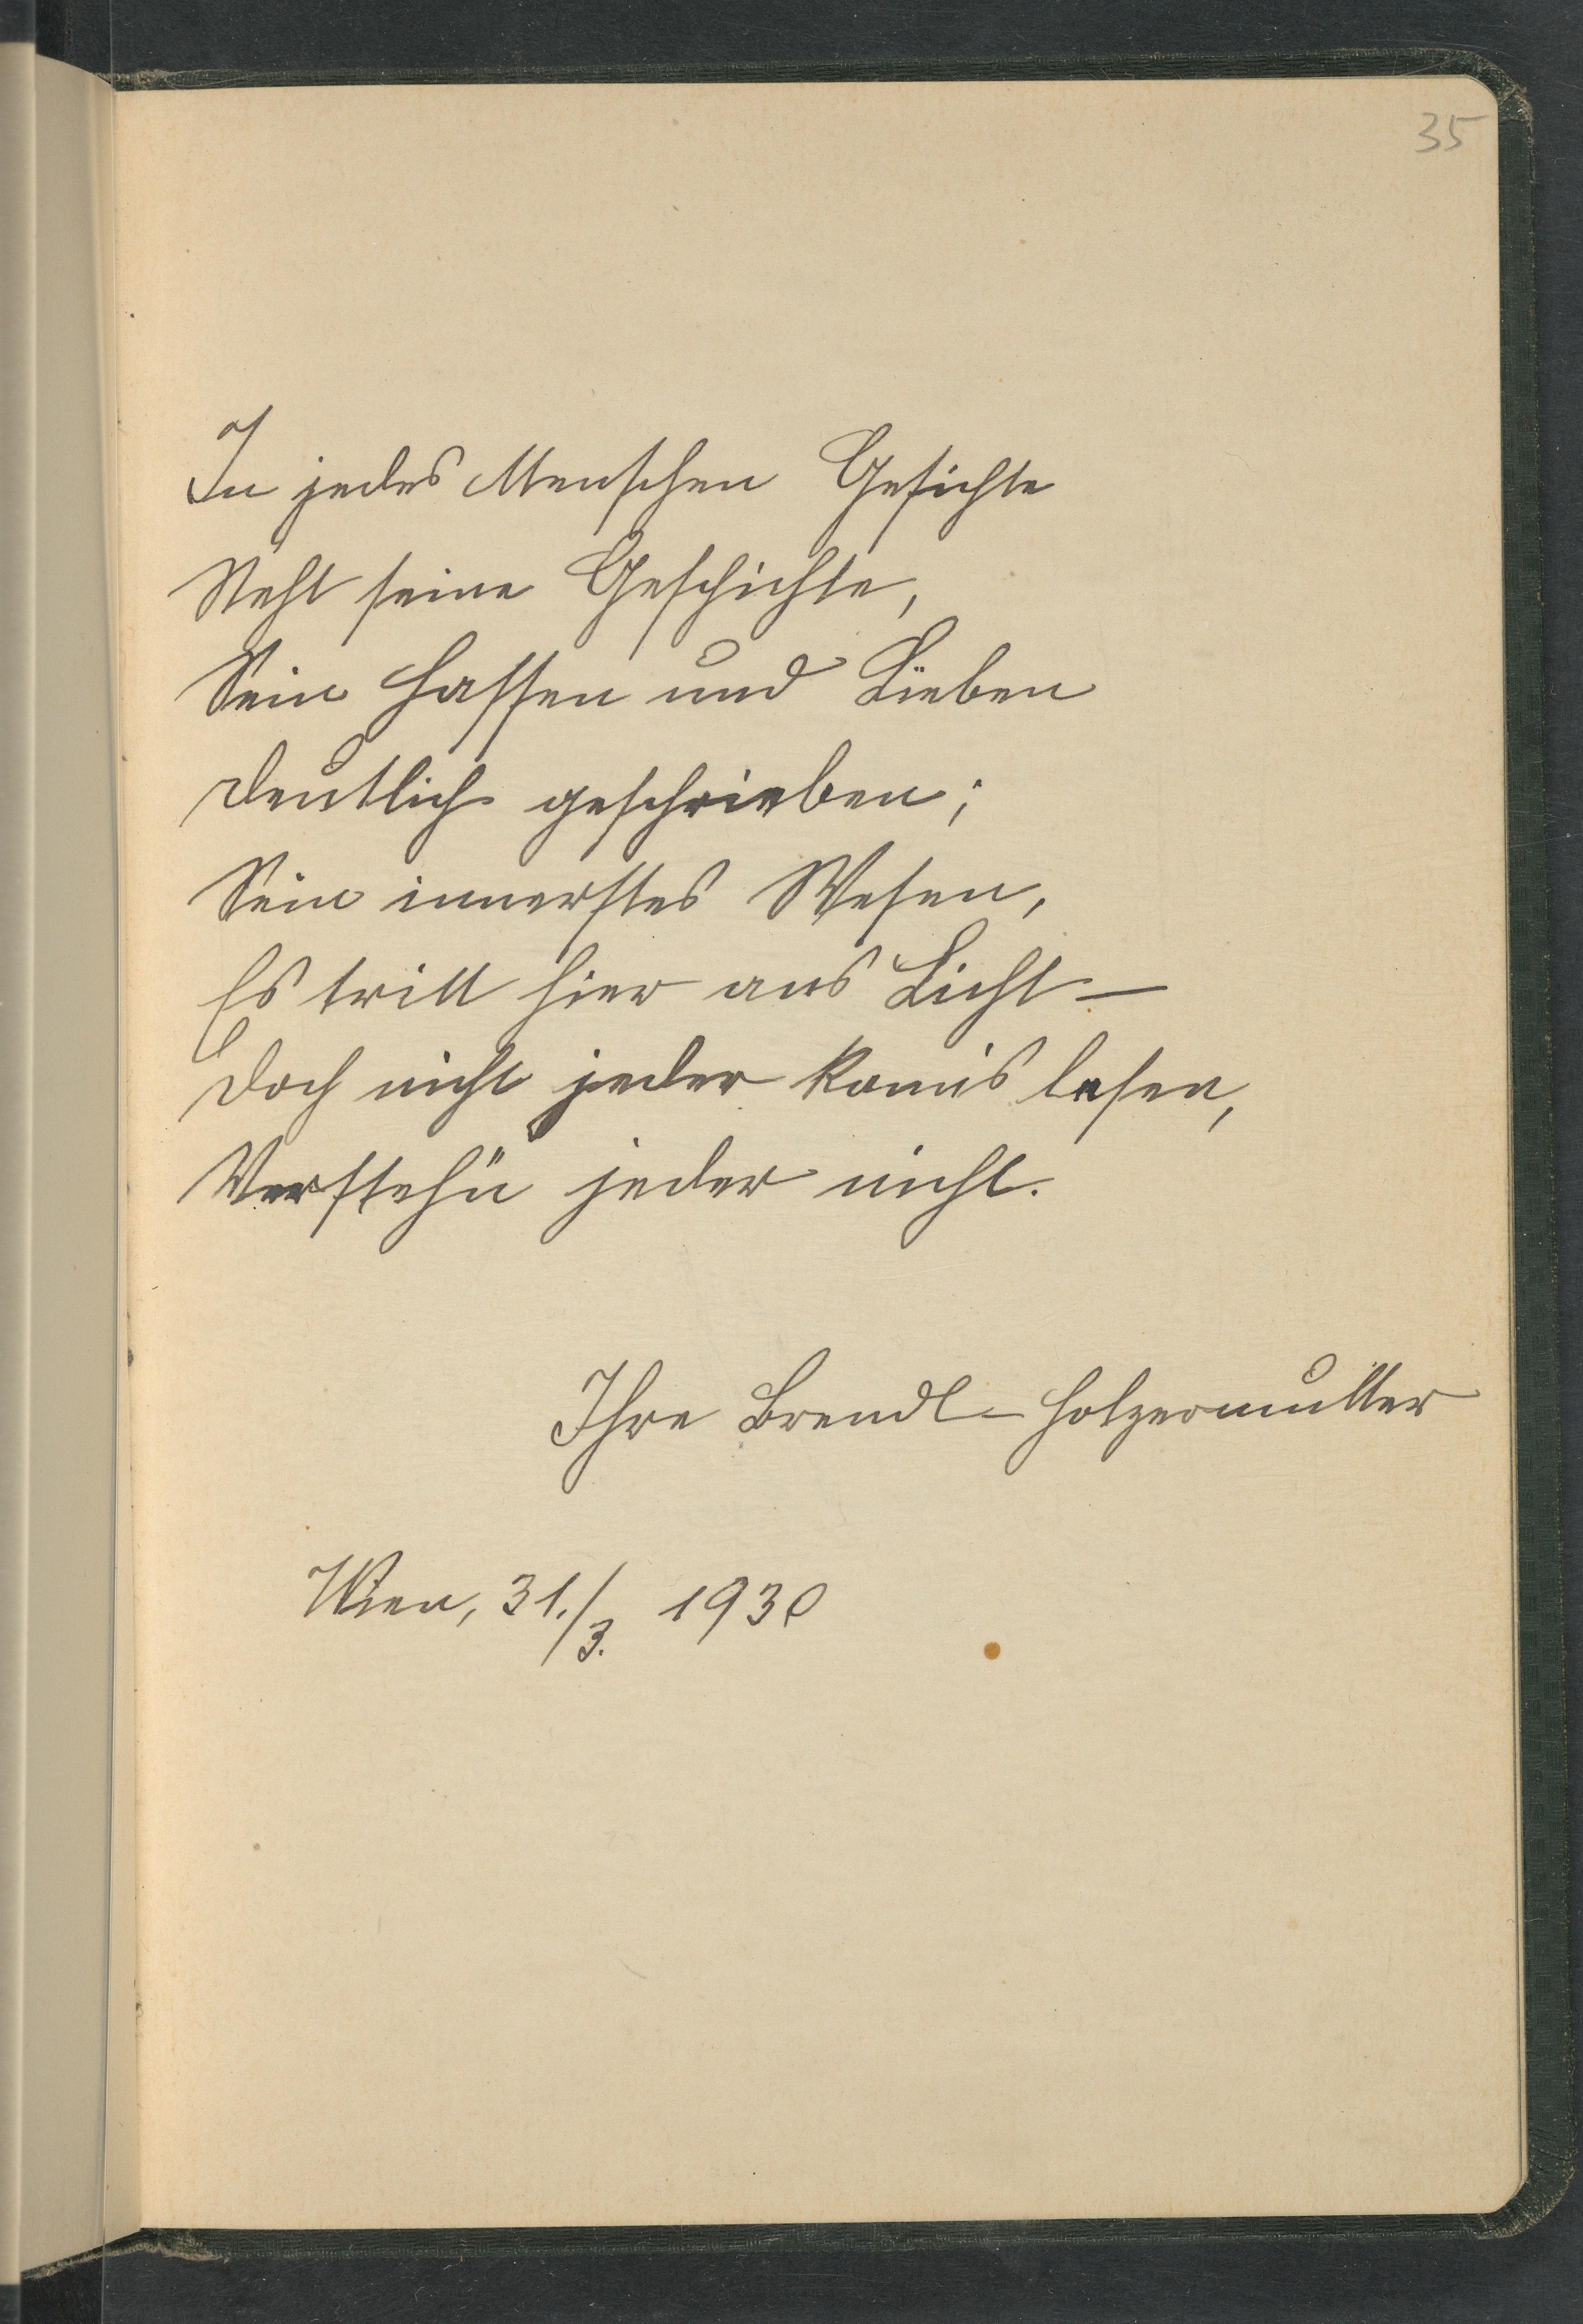 35
In jedes Menschen Gesichte
Steht seine Geschichte,
Sein Hassen und Lieben
Deutlich geschrieben;
Sein innerstes Wesen,
Es tritt hier ans Licht –
Doch nicht jeder kanns lesen,
Verstehn jeder nicht.
Ihre Brendl-Holzermutter
Wien, 31./3. 1930